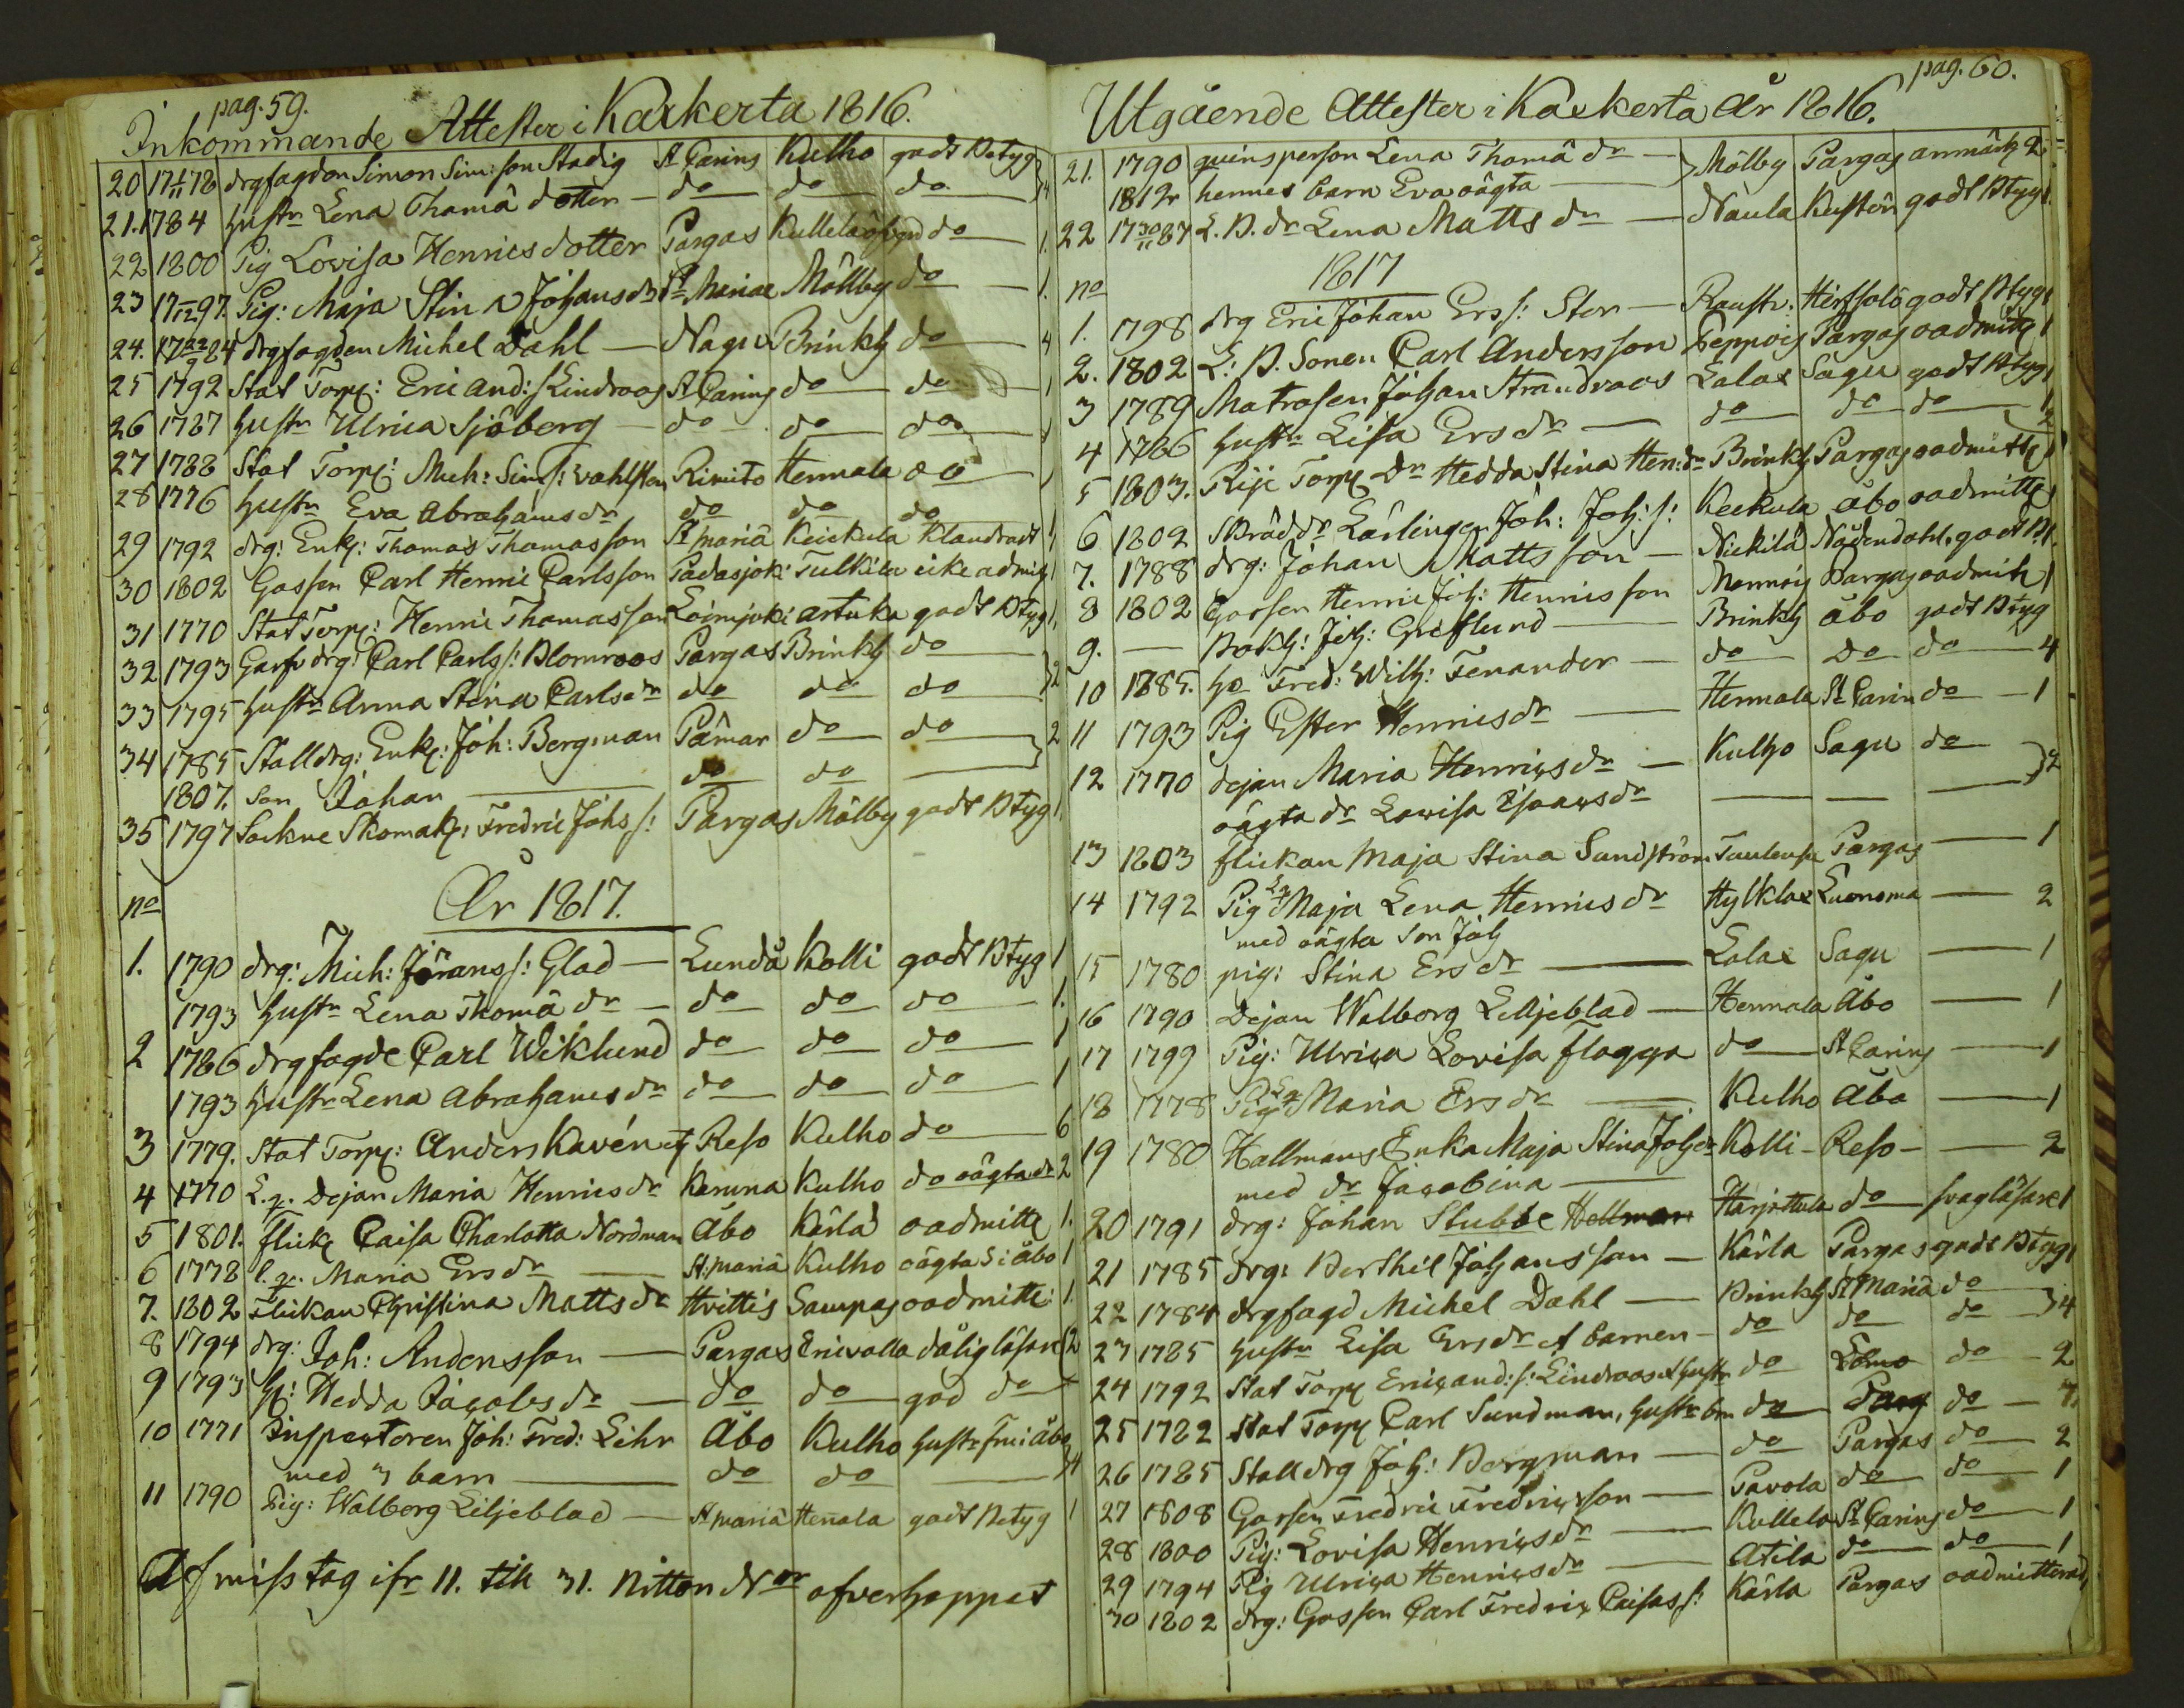 pag. 59.
Inkommande Attester i Kakkerta 1816.
20 17 1/11 78 drgfogden Simon Sim:son Stadig St Carins Kulho godt Betyg
21. 1784 hustr Lena Thomä dotter do do do 4
22 1800 Pig Lovisa Henricsdotter Pargas Kullela do 1.
23 17 97. Pig: Maja Stina Johansdr St Mariae Mållby do 1.
24. 17 22/9 84 drgfogden Michel Dahl Nagu Brinkh do 4
25 1792 Stat Torp: Eric And:s: Lindroos St Carins do do 1
26 1787 hustr Ulrica Sjöberg do do do 1
27 1788 Stat Torp: Mich: Sim:s: Wahlsten Rimito Hennala do 1
28 1776 hustr Eva Abrahamsdr do do do 1
29 1792 drg: Enkl: Thomas Thomasson St Mariä Keickula Klandradt 1
30 1802 Gossen Carl Henric Carlsson Padasjoki Tulkila icke admit 1
31 1770 Stat Torp: Henric Thomasson Loimjoki Artuka godt Btyg 1.
32 1793 Garfv drg: Carl Carls s: Blomroos Pargas Brinkh do
33 1795 hustr Anna Stina Carlsdr do do do 2
34 1785 Stalldrg: Enkl: Joh: Bergman Pämar do do 2
1807. Son Johan do do
35 1797 Sockne Skomak: Fredric Johs s: Pargas Målby godt Btyg 1.
no År 1817.
1. 1790 drg: Mich: Jörans s: Glad Lundå Kolli godt Btyg 1
1793 hustr Lena Thomä dr do do do 1.
2 1786 drgfogde Carl Wiklund do do do 1
1793 hustr Lena Abrahamsdr do do do 1
3 1779. Stat Torp: Anders Kavén Reso Kulho do 6
4 1770 L.q. Dejan Maria Henricsdr Karuna Kulho do oägta dr 2
5 1801. flick Caisa Charlotta Nordman Åbo Kärla oadmitt 1.
6 1778 l.q. Maria Ersdr St: Mariä Kulho oägta S i Åbo 1
7. 1802 Flickan Christina Mattsdr Hvittis Sampas oadmitt: 1.
8 1794 drg: Joh: Andersson Pargas Erivalla dålig läsare 2
9 1793 h: Hedda Jacobsdr do do god do
10 1771 Inspectoren Joh: Fred: Lihr Åbo Kulho hustr Fru i Åbo
med 3 barn do do 4
11 1790 Pig: Walborg Liljeblad St Mariä Henala godt Betyg 1
Af misstag ifr 11. till 31. Nitton Nor öfverhoppet
pag. 60.
Utgående Attester i Kakkerta År 1816.
21. 1790 qvinsperson Lena Thomä dr Mölby Pargas anmärk 2
1812 hennes barn Eva oägta
22 17 30/11 87 L. B. dr Lena Mattsdr Naula Kustön godt Btyg 1.
no 1817
1. 1798 drg Eric Johan Ers s: Stor Raustv: Hirfsalo godt Btyg 1
2. 1802 L: B. Sonen Carl Andersson Peppois Pargas oadmitt 1
3 1789 Matrosen Johan Strandroos Lalax Sagu godt Btyg 1
4 1786 hustr Lisa Ersdr do do do 2
5 1803. Rije Torp Dr Hedda Stina Hen:dr Brinkh Pargas oadmitt 1
6 1802 Skrädd Lärlingen Joh: Joh: s: Keckula Åbo oadmitt
7. 1788 drg: Johan Mattsson Nickilä Nådendahl. godt B.
8 1802 Gossen Henric Joh: Henricsson Mennois Pargas oadmitt 1
9. — Bokh: Joh: Greflund Brinkh Åbo godt Btyg
10 1785. he Fred: Wilh: Fenander do do do 4
11 1793 Pig Ester Henricsdr Hennala St Carin do 1
12 1770 dejan Maria Henricsdr Kulho Sagu do 2
oägta dr Lovisa Isaacsdr
13 1803 flickan Maja Stina Sundström Pargas 1
14 1792 Pig Lq Maja Lena Henricsdr Hylklax Luonoma 2
med oägta son Joh
15 1780 pig: Stina Ersdr Lalax Sagu 1
16 1790 Dejan Walborg Lilljeblad Hennala Åbo 1
17 1799 Pig: Ulrica Lovisa Flagga do St Carins 1
18 1778 Pig Lq Maria Ersdr Kulho Åbo 1
19 1780 Hallmans Enka Maja Stina Johsdr Kolli Reso 2
med dr Jacobina
20 1791 drg: Johan Stubbe Hellman Harjattula do svagläsare 1
21 1785 drg: Berthil Johansson Kärla Pargas godt Btyg 1
22 1784 drgfogd Michel Dahl Brinkh St Mariä do
23 1785 hustr Lisa Ersdr et barnen do do do 4
24 1792 Stat Torp Eric And:s: Lindroos et hustr do Lomo do 2
25 1782 Stat Torp Carl Sundman, hustr brn do Parg do 7.
26 1785 Stalldrg Joh: Bergman do Pargas do 2
27 1808 Gossen Fredric Fredricsson Pavola do do 1
28 1800 Pig: Lovisa Henricsdr Kullela St Carins do 1
29 1794 Pig Ulrica Henricsdr Atila do do 1
30 1802 drg: Gossen Carl Fredric Caisas s: Kärla Pargas oadmitterad 1